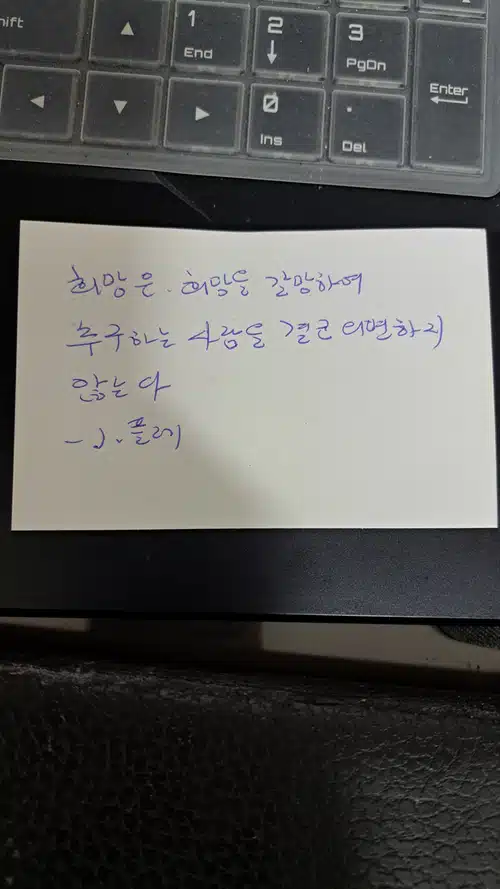 hift
1
End
2
↓
Ins
3
PgDn
0
.
Del
Enter
희망은. 희망을 갈망하여
추구하는 사람을 결코 외면하지
않는다
- J. 플레